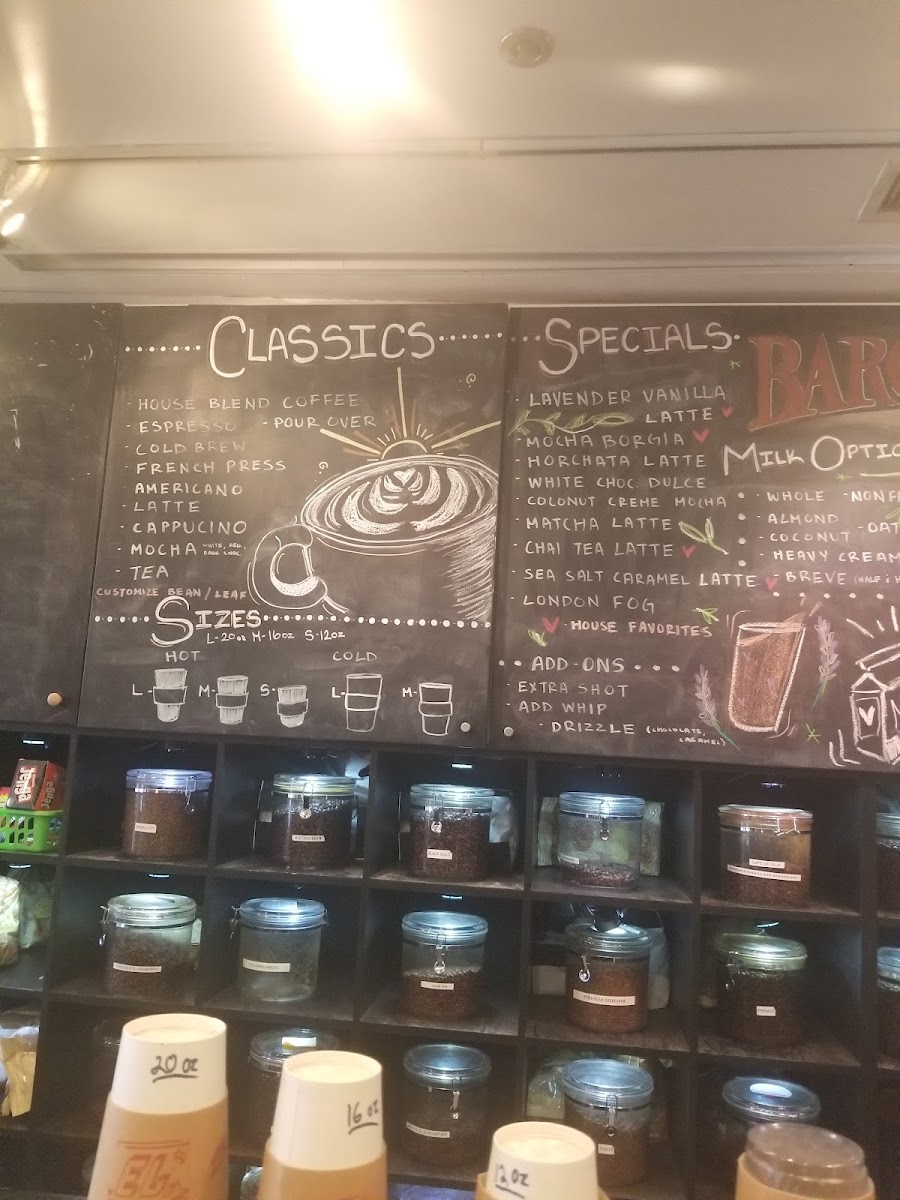 CLASSICS
- HOUSE BLEND COFFEE
- ESPRESSO - POUR OVER
- COLD BREW
- FRENCH PRESS
- AMERICANO
- LATTE
- CAPPUCINO
- MOCHA
- TEA
CUSTOMIZE BEAN/LEAF
SIZES
L-20oz M-16oz S-12oz
HOT COLD
L- M- S- L- M-
SPECIALS
- LAVENDER VANILLA
LATTE
- MOCHA BORGIA
- HORCHATA LATTE
- WHITE CHOC. DULCE
- COCONUT CREME MOCHA
- MATCHA LATTE
- CHAI TEA LATTE
- SEA SALT CARAMEL LATTE
- LONDON FOG
- HOUSE FAVORITES
ADD-ONS
- EXTRA SHOT
- ADD WHIP
- DRIZZLE (CHOCOLATE, CARAMEL)
BARO
MILK OPTIO
- WHOLE - NONFA
- ALMOND
- COCONUT - OAT
- HEAVY CREAM
- BREVE (HALF & H
Jenga
20 oz
16 oz
12 oz
EL